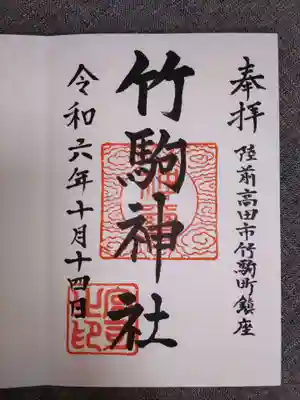 奉拝
陸前高田市竹駒町鎮座
竹駒神社
令和六年十月十四日